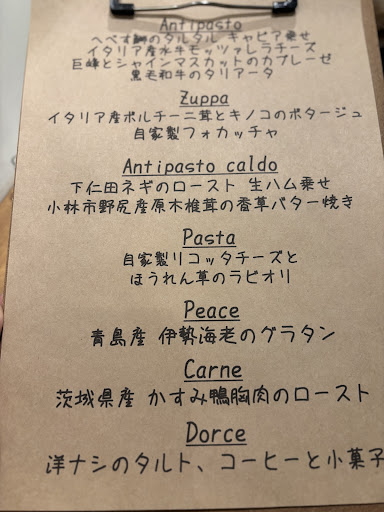 Antipasto
へべす鰤のタルタル キャビア乗せ
イタリア産水牛モッツァレラチーズ
巨峰とシャインマスカットのカプレーゼ
黒毛和牛のタリアータ
Zuppa
イタリア産ポルチーニ茸とキノコのポタージュ
自家製フォカッチャ
Antipasto caldo
下仁田ネギのロースト 生ハム乗せ
小林市野尻産原木椎茸の香草バター焼き
Pasta
自家製リコッタチーズと
ほうれん草のラビオリ
Peace
青島産 伊勢海老のグラタン
Carne
茨城県産 かすみ鴨胸肉のロースト
Dorce
洋ナシのタルト、コーヒーと小菓子